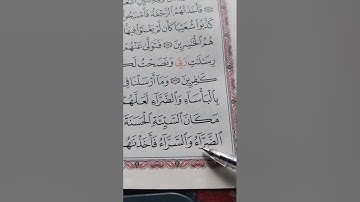 فَأَخَذَتْهُمُ الرَّجْفَةُ فَأَصْبَحُوا
كَذَّبُوا شُعَيْبًا كَأَن لَّمْ يَغْنَوْا فِيهَا
هُمُ الْخَاسِرِينَ فَتَوَلَّىٰ عَنْهُمْ
رِسَالَاتِ رَبِّي وَنَصَحْتُ لَكُ
كَافِرِينَ وَمَا أَرْسَلْنَا فِي
بِالْبَأْسَاءِ وَالضَّرَّاءِ لَعَلَّهُمْ
مَكَانَ السَّيِّئَةِ الْحَسَنَةَ
الضَّرَّاءُ وَالسَّرَّاءُ فَأَخَذْنَاهُ